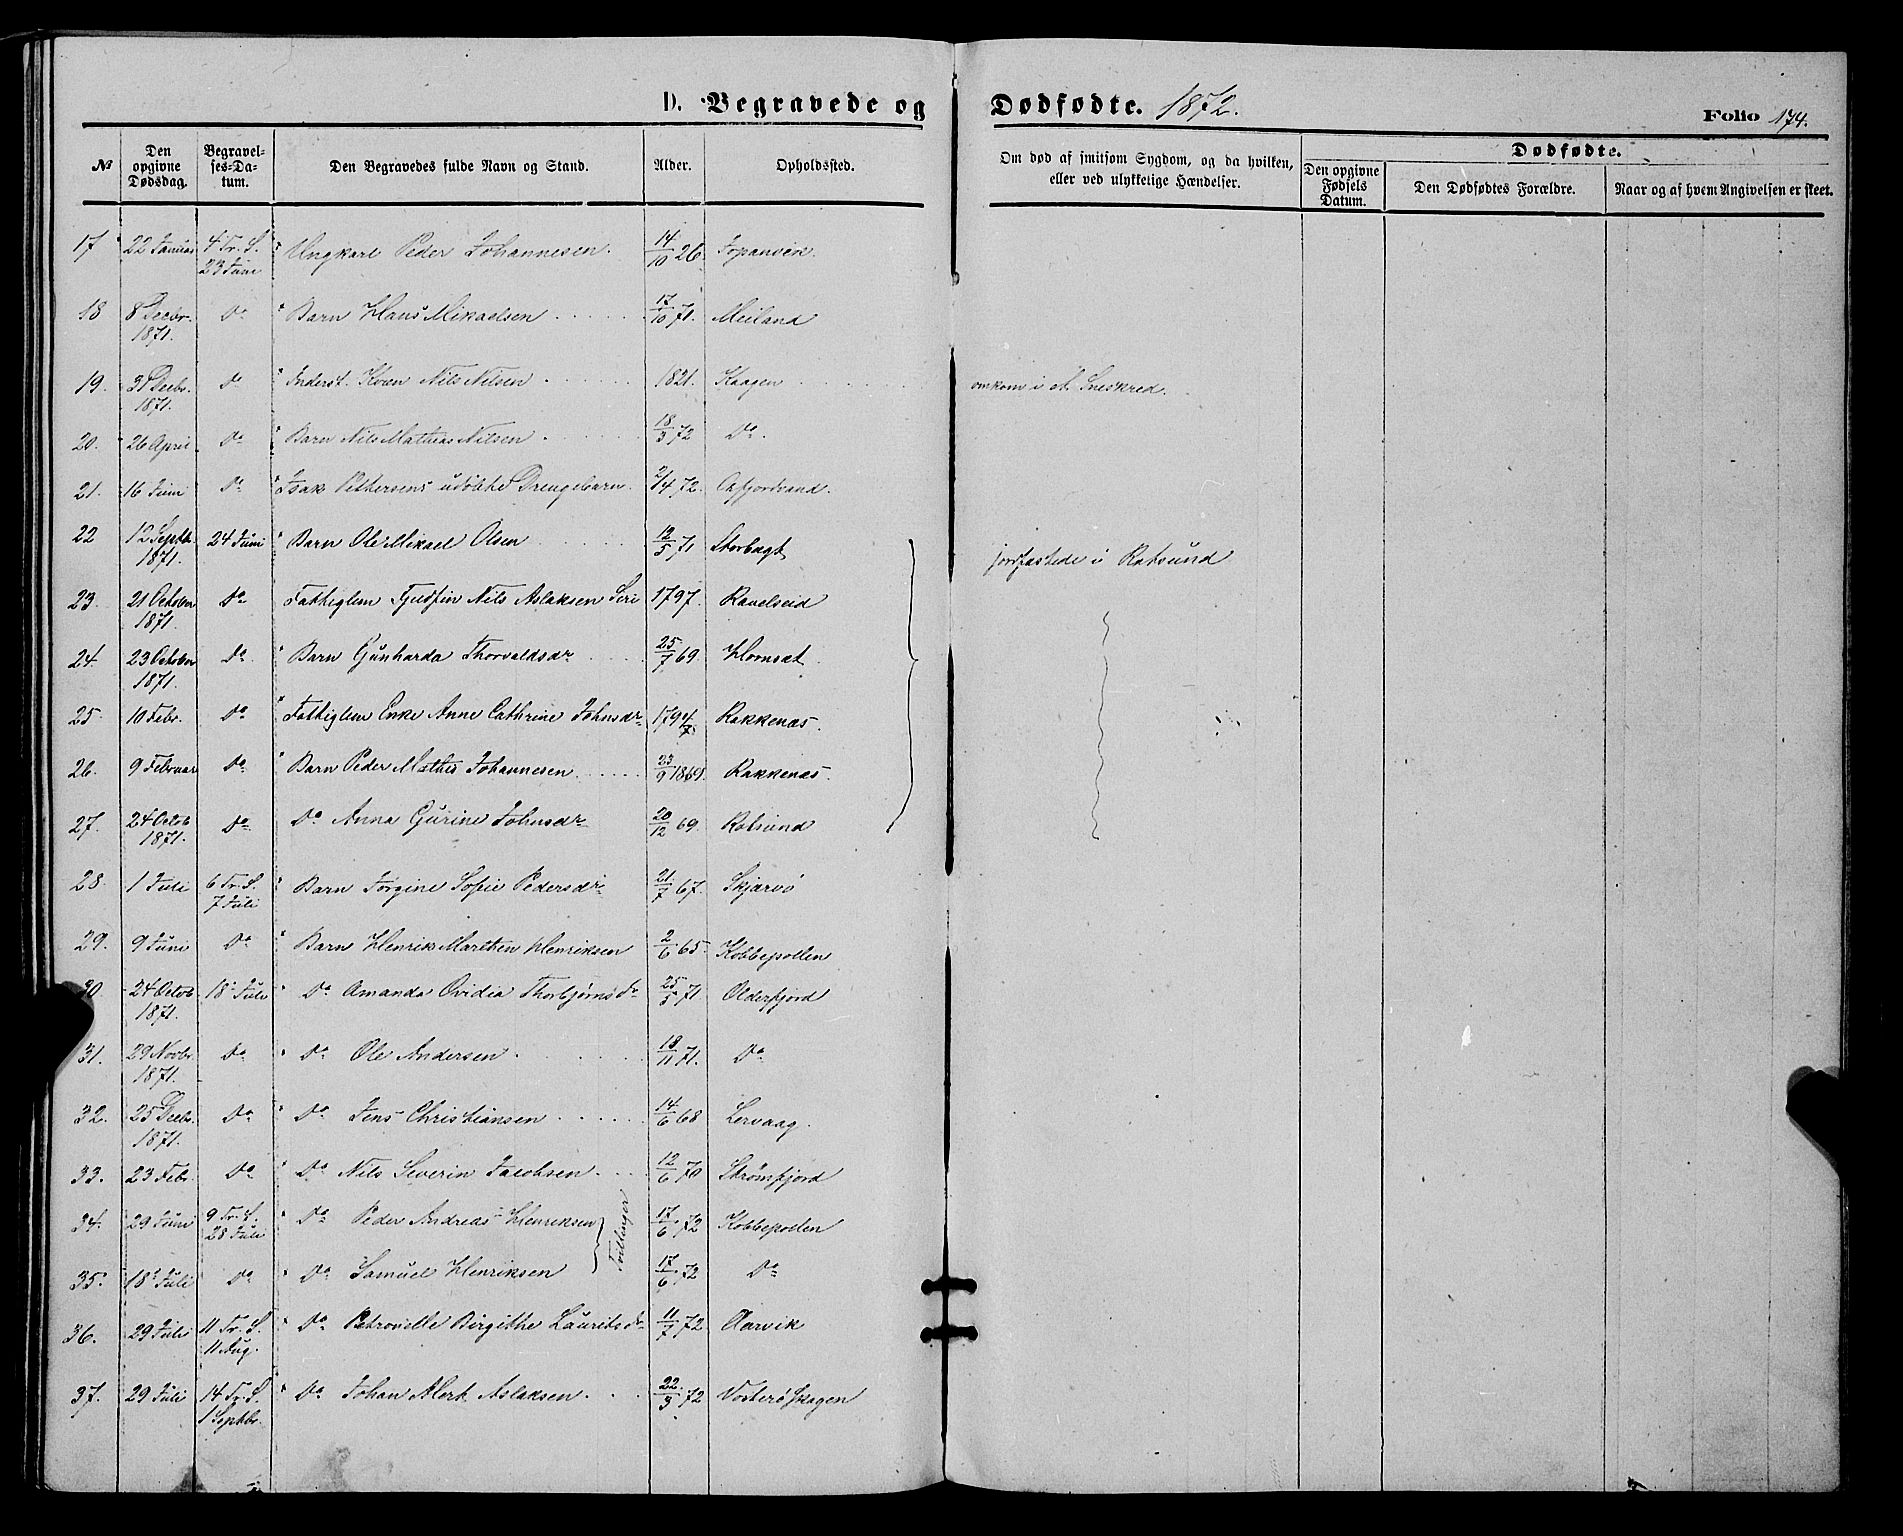 D. Begravede og Dødfødte. 1872. Folio 174.
№ Den opgivne Dødsdag. Begravelses-Datum. Den Begravedes fulde Navn og Stand. Alder. Opholdssted. Om død af smitsom Sygdom, og da hvilken, eller ved ulykkelige Hændelser. Dødfødte. Den opgivne Fødsels Datum. Den Dødfødtes Forældre. Naar og af hvem Angivelsen er skeet.
17 22 Januar 4 Tr. S. 23 Juni Ungkarl Peder Johannesen. 14/10 26.
18 8 Decbr. 1871. Do Barn Hans Mikaelsen 17/10 71. Meiland
19. 31 Decbr. 1871. Do Inderst. Kvæn Nils Nilsen 1821. Kaagen omkom i et Sneskred.
20. 26 April Do Barn Nils Mathias Nilsen 18/3 72 Do.
21. 16 Juni Do Isak Pettersens udøbte Drengebarn. 2/4 72.
22 12 Septb. 1871. 24 Juni Barn Ole Mikael Olsen 12/5 71 Storbugt jordfæstede i Rotsund
23. 21 October 1871. Do Fattiglem Gudfin Nils Aslaksen Siri 1797. Ravelseid
24. 23 October 1871. Do Barn Gunharda Thorvaldsdr 25/7 69. Hamsæt.
25. 10 Febr. Do Fattiglem Enke Anne Cathrine Johnsdr 1794/7. Rakkenæs.
26. 9 Februar Do Barn Peder Mathis Johannesen 23/9 1869. Rakkenæs.
27. 24 Octob 1871. Do Do Anna Gurine Johnsdr 20/12 69. Rotsund
28. 1 Juli 6 Tr. S. 7 Juli Barn Jørgine Sofie Pedersdr 21/7 67. Skjærvø
29. 9 Juni Do Barn Henrik Marthen Henriksen 2/6 65. Kobbepollen
30. 24 Octob 1871. 18 Juli Do Amanda Ovidia Thorbjørnsdr 25/5 71 Olderfjord
31. 29 Novbr. 1871. Do Do Ole Andersen 18/11 71. Do
32. 25 Decbr. 1871. Do Do Jens Christiansen 14/6 68 Lervaag.
33. 23 Febr. Do Do Nils Severin Jacobsen 12/6 70 Strømfjord
34. 29 Juni 9 Tr. S. 28 Juli Do Peder Andreas Henriksen 17/6 72 Kobbepollen
Tvillinger
35. 18 Juli Do Do Samuel Henriksen 17/6 72 Do
36. 29 Juli 11 Tr. S. 11 Aug. Do Petronelle Birgithe Lauritsdr 11/7 72. Aarvik
37. 29 Juli 14 Tr. S. 1 Septbr. Do Johan Alert Aslaksen 22/3 72 Vorterøskagen